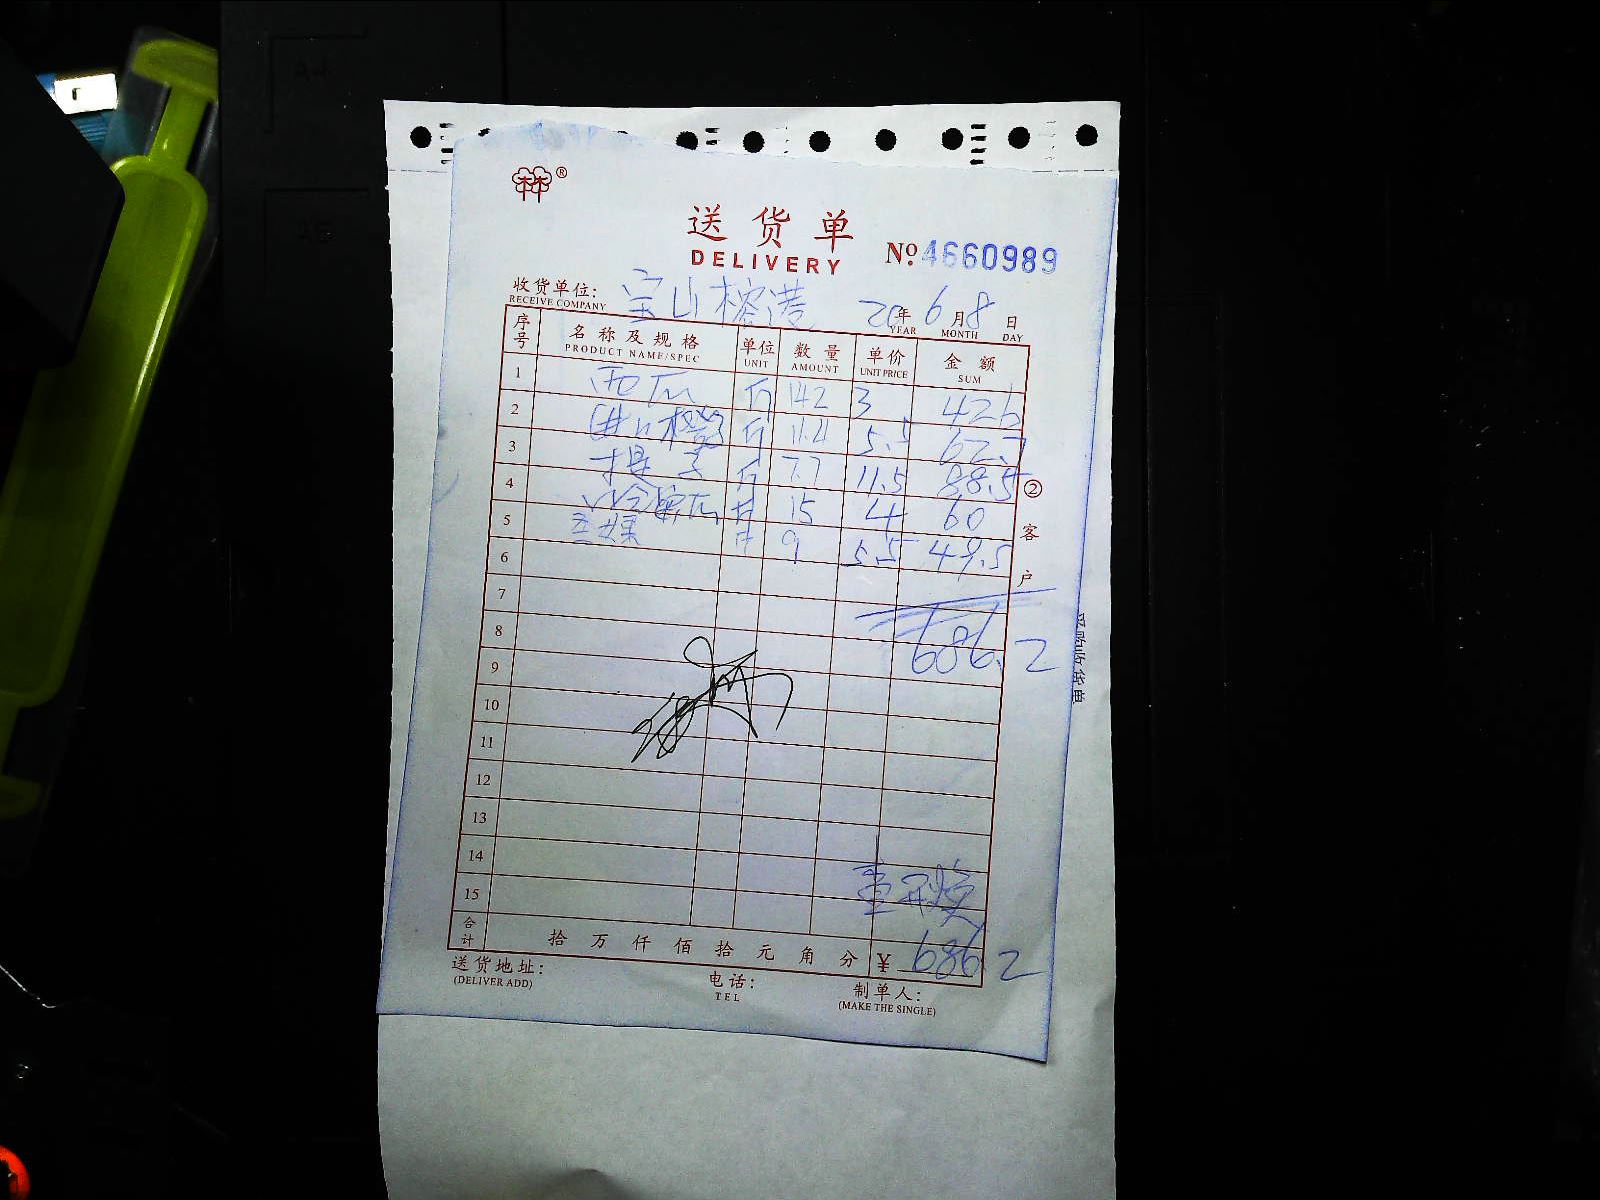 送货单
DELIVERY
No. 4660989
收货单位: 宝山榕港 20年 6月 8日
RECEIVE COMPANY YEAR MONTH DAY
序号 名称及规格 单位 数量 单价 金额
PRODUCT NAME/SPEC UNIT AMOUNT UNIT PRICE SUM
1 西瓜 斤 142 3 426
2 进口橙 斤 11.4 5.5 62.7
3 提子 斤 7.7 11.5 88.5
4 哈密瓜 斤 15 4 60
5 斤 9 5.5 49.5
6
7
8 686.2
9
10
11
12
13
14
15
合计 拾万仟佰拾元角分 ¥ 686.2
送货地址: 电话: 制单人:
(DELIVER ADD) TEL (MAKE THE SINGLE)
②客户
采购收货单